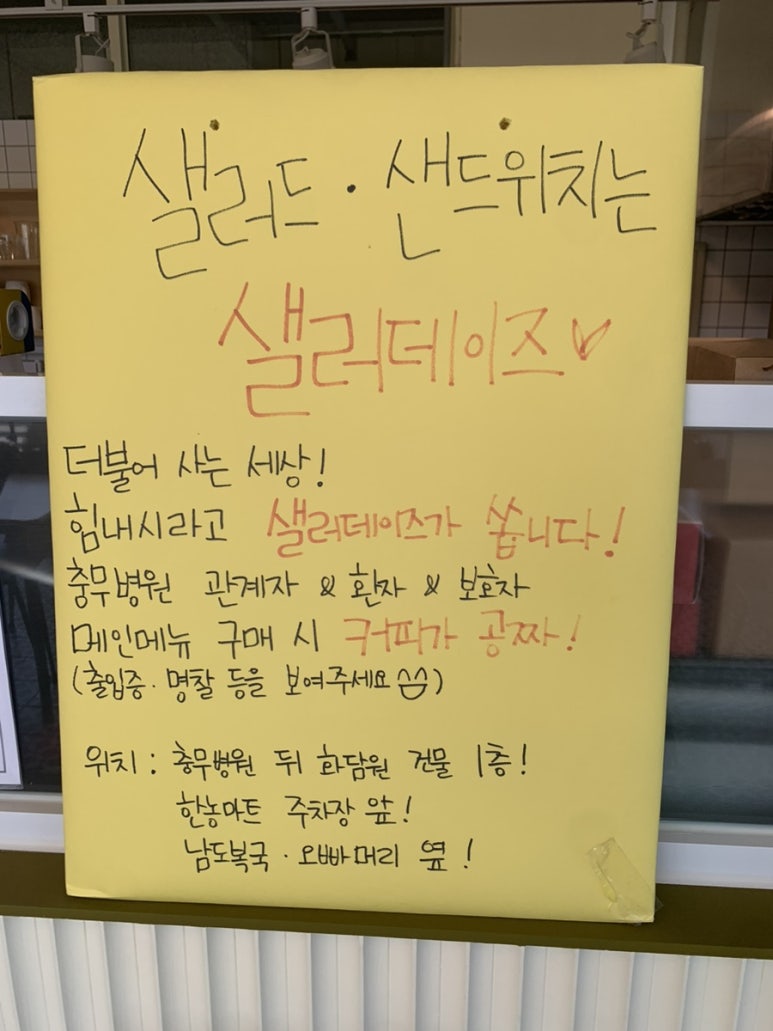 샐러드 · 샌드위치는
샐러데이즈♡
더불어 사는 세상!
힘내시라고 샐러데이즈가 쏩니다!
충무병원 관계자 & 환자 & 보호자
메인메뉴 구매 시 커피가 공짜!
(출입증 · 명찰 등을 보여주세요^^)
위치 : 충무병원 뒤 화담원 건물 1층!
한농마트 주차장 앞!
남도복국 · 오빠머리 옆!